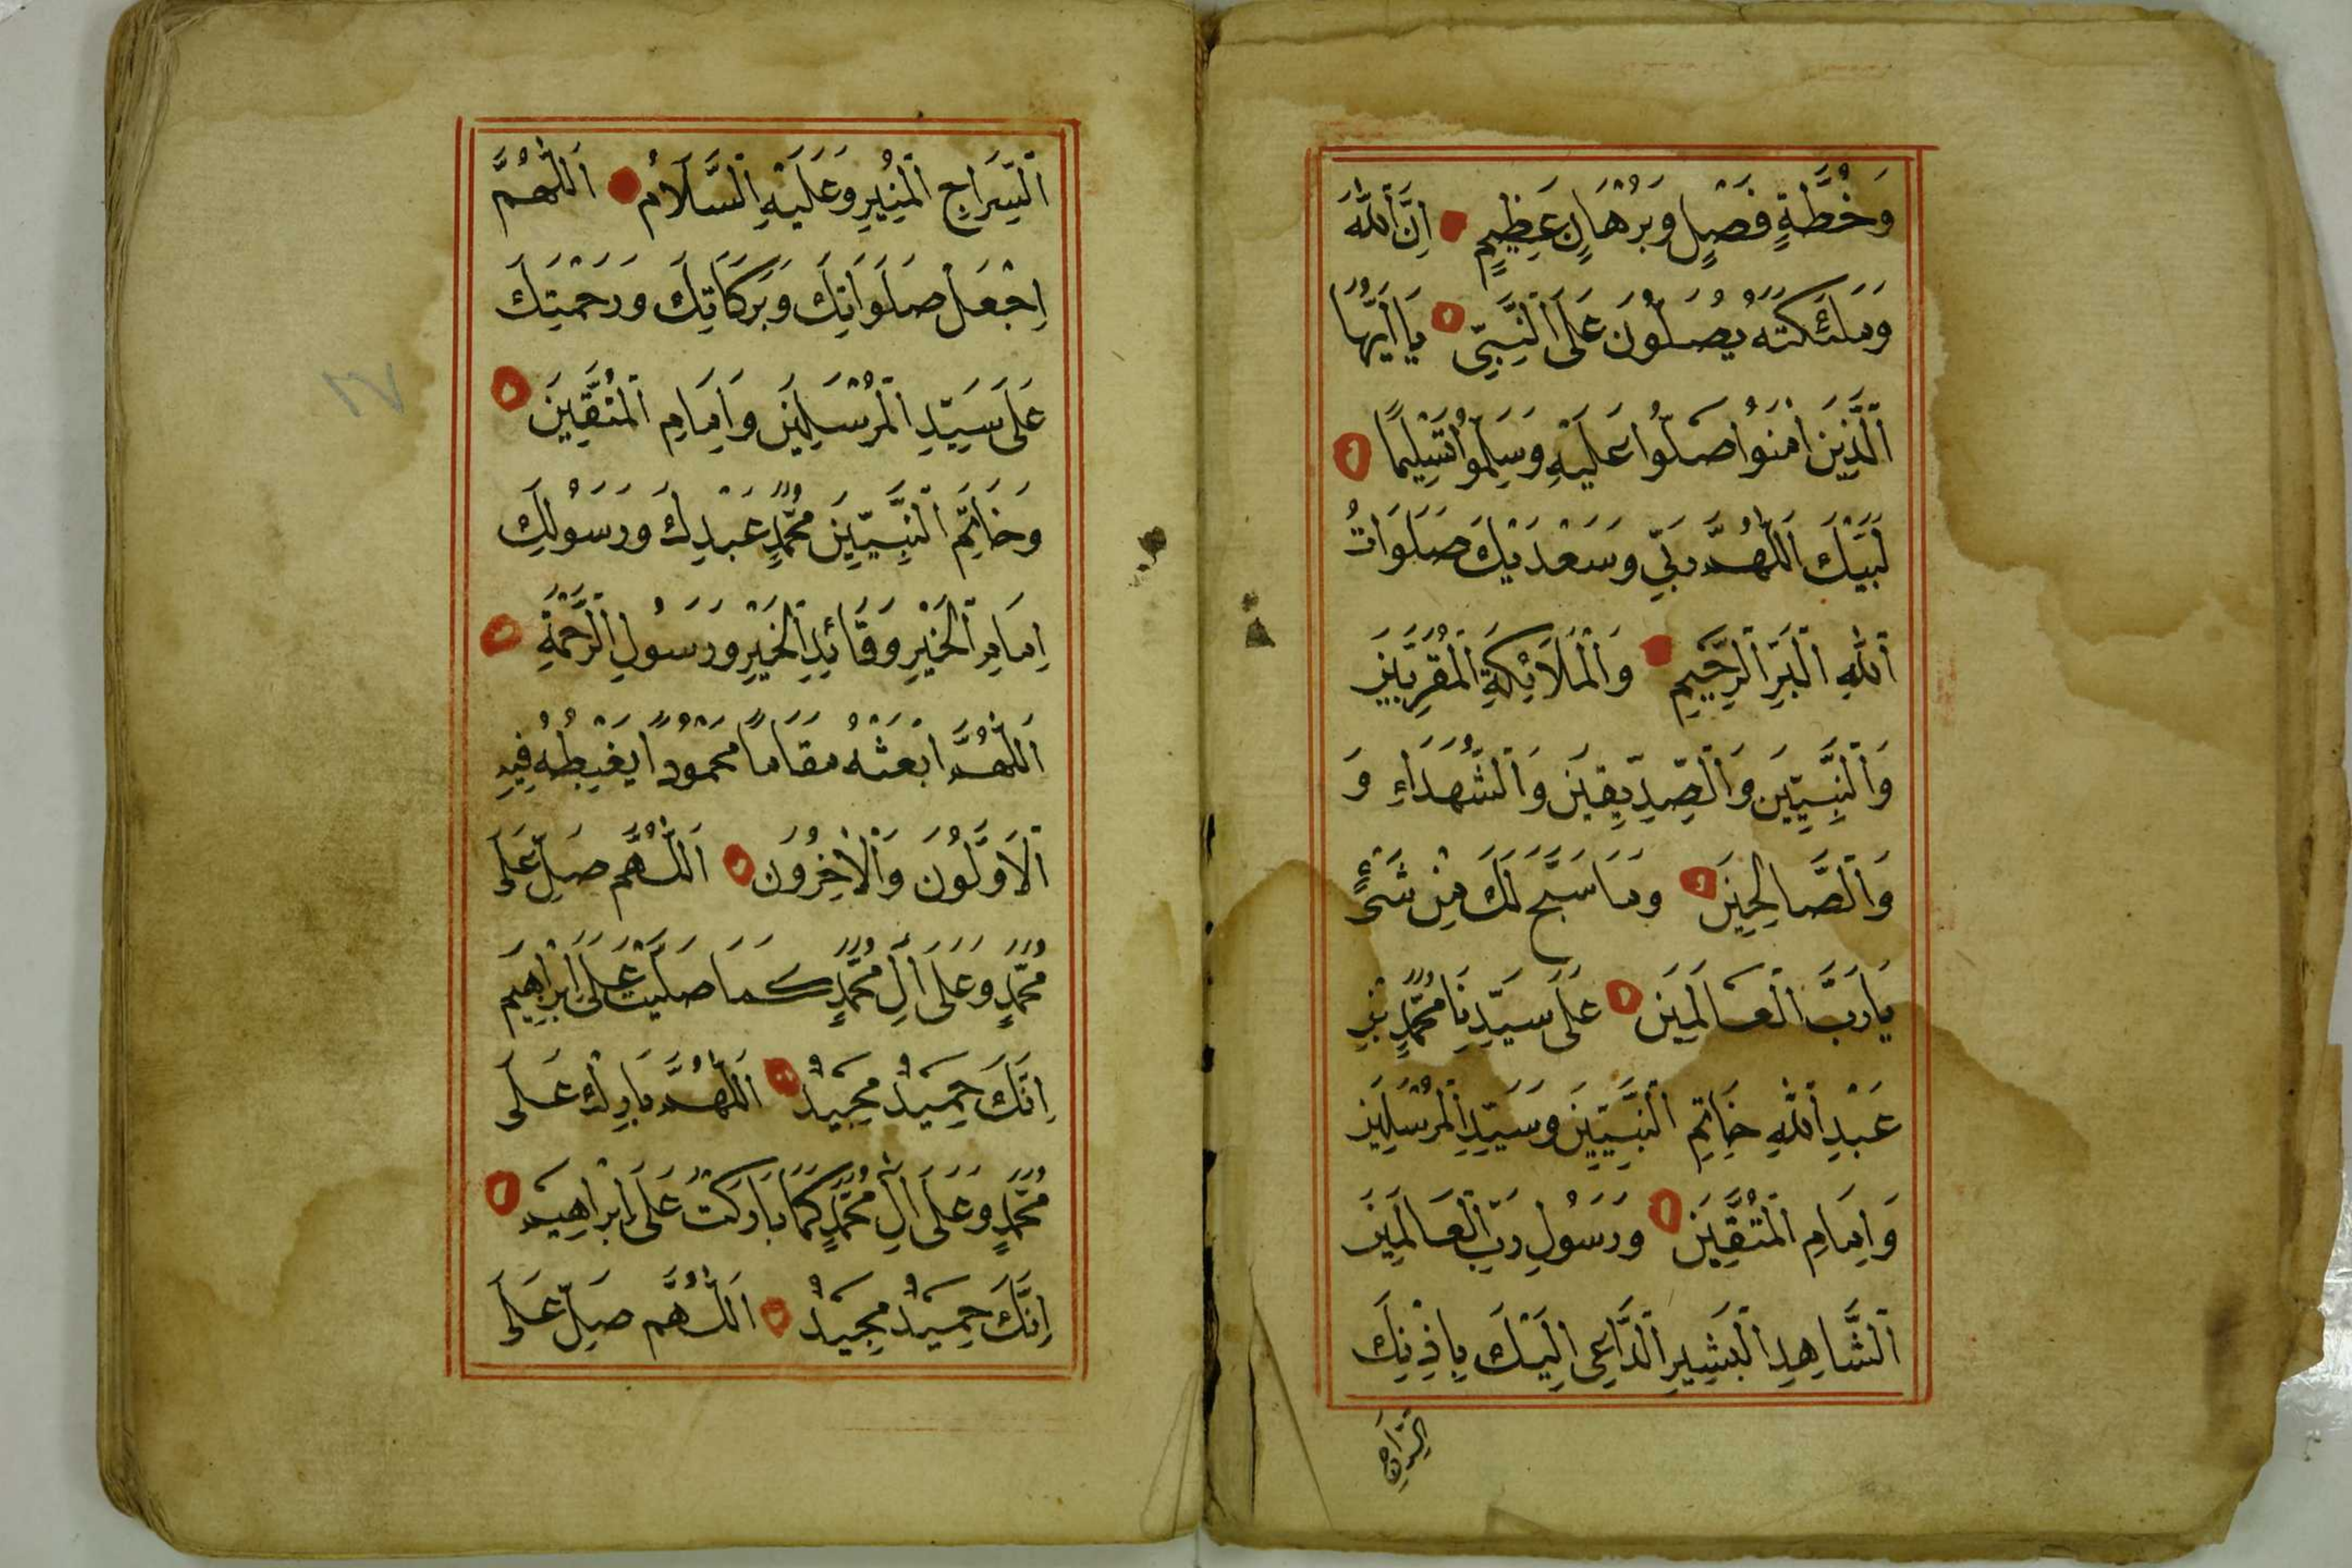 وَخُطَّةٍ فَصْلٍ وَبُرْهَانٍ عَظِيمٍ اِنَّ اللّٰهَ
وَمَلٰئِكَتَهُ يُصَلُّونَ عَلَى النَّبِيِّ يَا اَيُّهَا
الَّذِينَ اٰمَنُوا صَلُّوا عَلَيْهِ وَسَلِّمُوا تَسْلِيمًا
لَبَّيْكَ اَللّٰهُمَّ رَبِّي وَسَعْدَيْكَ صَلَوَاتُ
اللّٰهِ الْبَرِّ الرَّحِيمِ وَالْمَلَائِكَةِ الْمُقَرَّبِينَ
وَالنَّبِيِّينَ وَالصِّدِّيقِينَ وَالشُّهَدَاءِ وَ
وَالصَّالِحِينَ وَمَا سَبَّحَ لَكَ مِنْ شَيْءٍ
يَا رَبَّ الْعَالَمِينَ عَلَى سَيِّدِنَا مُحَمَّدِ بْنِ
عَبْدِ اللّٰهِ خَاتِمِ النَّبِيِّينَ وَسَيِّدِ الْمُرْسَلِينَ
وَاِمَامِ الْمُتَّقِينَ وَرَسُولِ رَبِّ الْعَالَمِينَ
الشَّاهِدِ الْبَشِيرِ الدَّاعِي اِلَيْكَ بِاِذْنِكَ
السِّرَاجِ
السِّرَاجِ الْمُنِيرِ وَعَلَيْهِ السَّلَامُ اَللّٰهُمَّ
اِجْعَلْ صَلَوَاتِكَ وَبَرَكَاتِكَ وَرَحْمَتِكَ
عَلَى سَيِّدِ الْمُرْسَلِينَ وَاِمَامِ الْمُتَّقِينَ
وَخَاتِمِ النَّبِيِّينَ مُحَمَّدٍ عَبْدِكَ وَرَسُولِكَ
اِمَامِ الْخَيْرِ وَقَائِدِ الْخَيْرِ وَرَسُولِ الرَّحْمَةِ
اَللّٰهُمَّ ابْعَثْهُ مَقَامًا مَحْمُودًا يَغْبِطُهُ فِيهِ
الْاَوَّلُونَ وَالْاٰخِرُونَ اَللّٰهُمَّ صَلِّ عَلَى
مُحَمَّدٍ وَعَلَى اٰلِ مُحَمَّدٍ كَمَا صَلَّيْتَ عَلَى اِبْرَاهِيمَ
اِنَّكَ حَمِيدٌ مَجِيدٌ اَللّٰهُمَّ بَارِكْ عَلَى
مُحَمَّدٍ وَعَلَى اٰلِ مُحَمَّدٍ كَمَا بَارَكْتَ عَلَى اِبْرَاهِيمَ
اِنَّكَ حَمِيدٌ مَجِيدٌ اَللّٰهُمَّ صَلِّ عَلَى
١٧